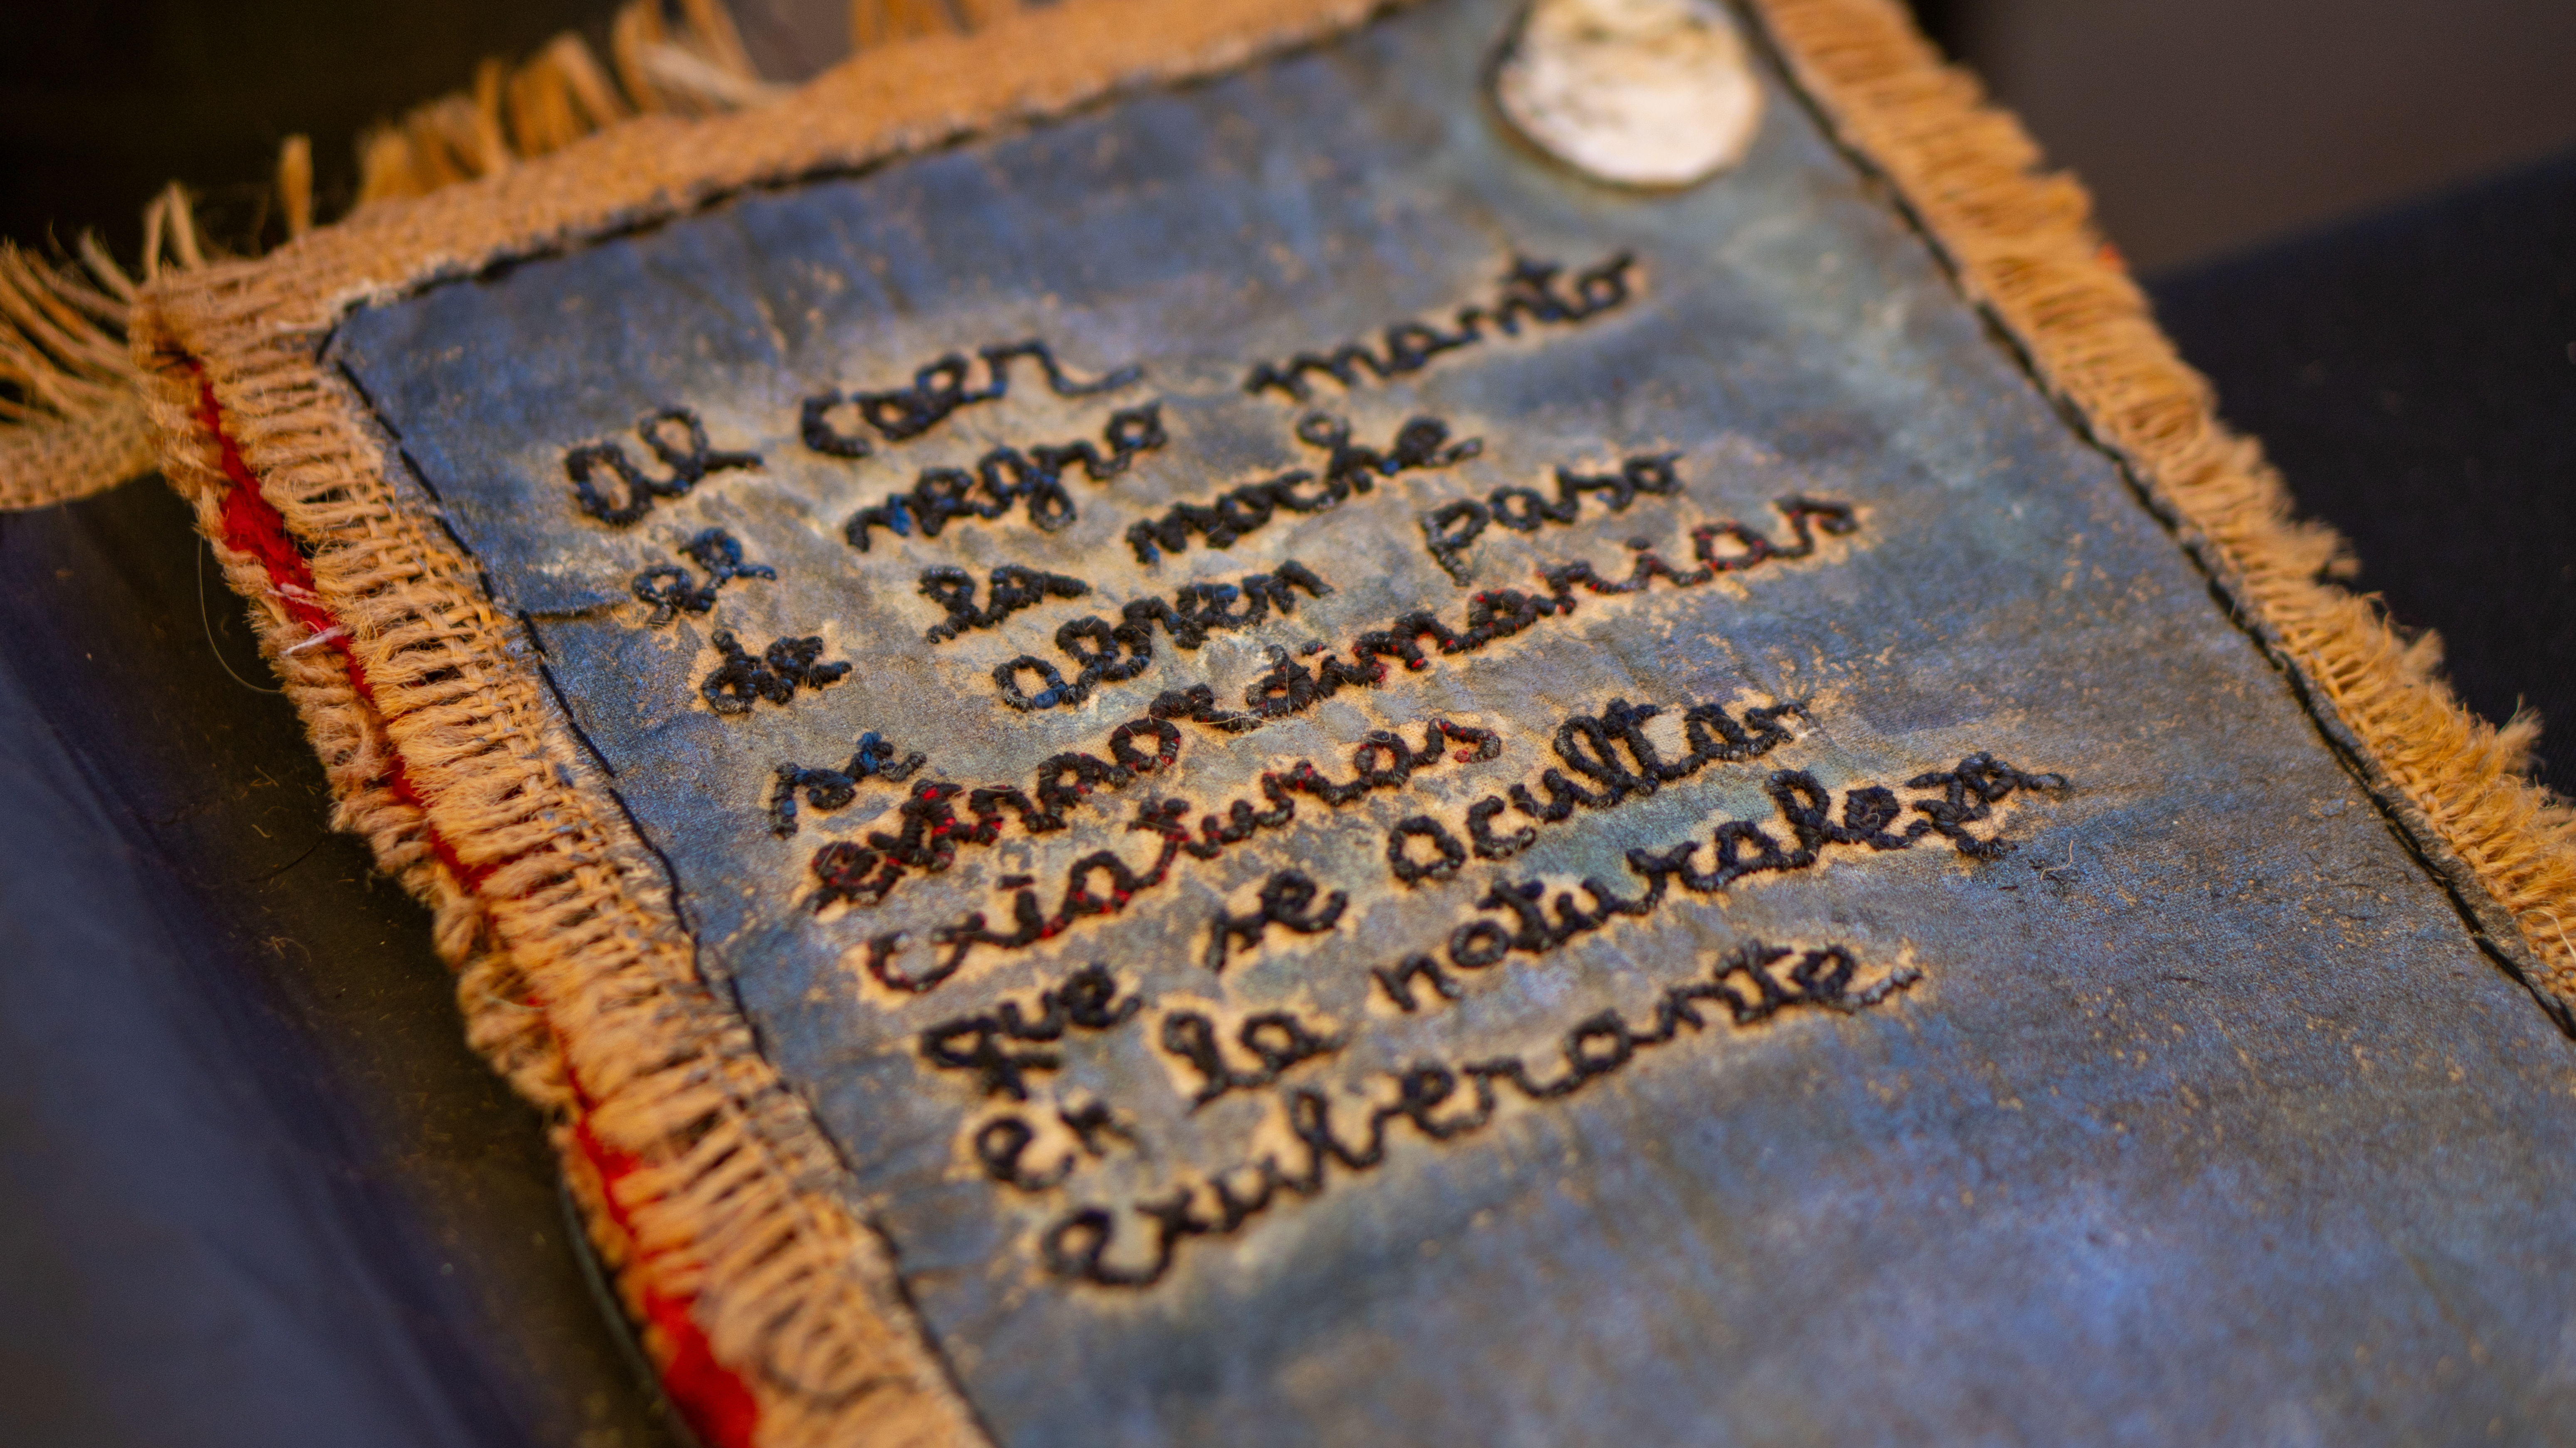 Al caer
el negro manto
de la noche
se abren paso
extraordinarias
criaturas
que se ocultan
en la naturaleza
exuberante